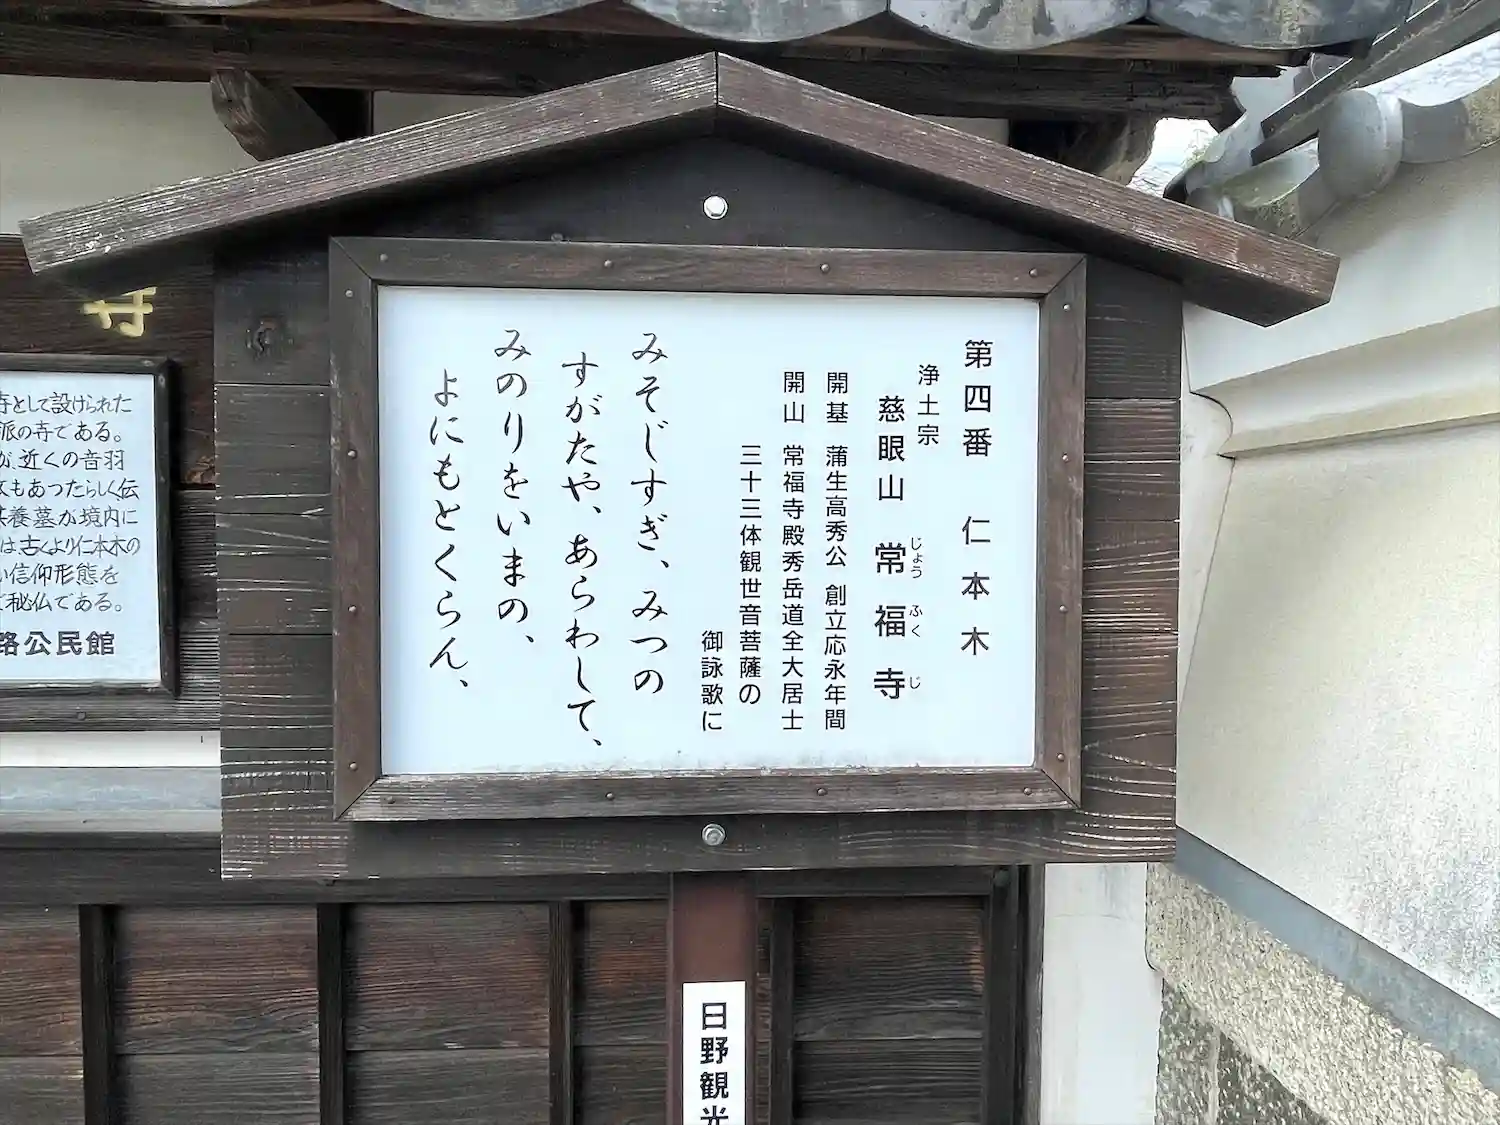 第四番 仁本木
浄土宗
慈眼山 常福寺
じょう ふく じ
開基 蒲生高秀公 創立応永年間
開山 常福寺殿秀岳道全大居士
三十三体観世音菩薩の
御詠歌に
みそじすぎ、みつの
すがたや、あらわして、
みのりをいまの、
よにもとくらん、
寺として設けられた
派の寺である。
が、近くの音羽
もあったらしく伝
供養墓が境内に
は古くより仁本木の
い信仰形態を
て秘仏である。
路公民館
日野観光